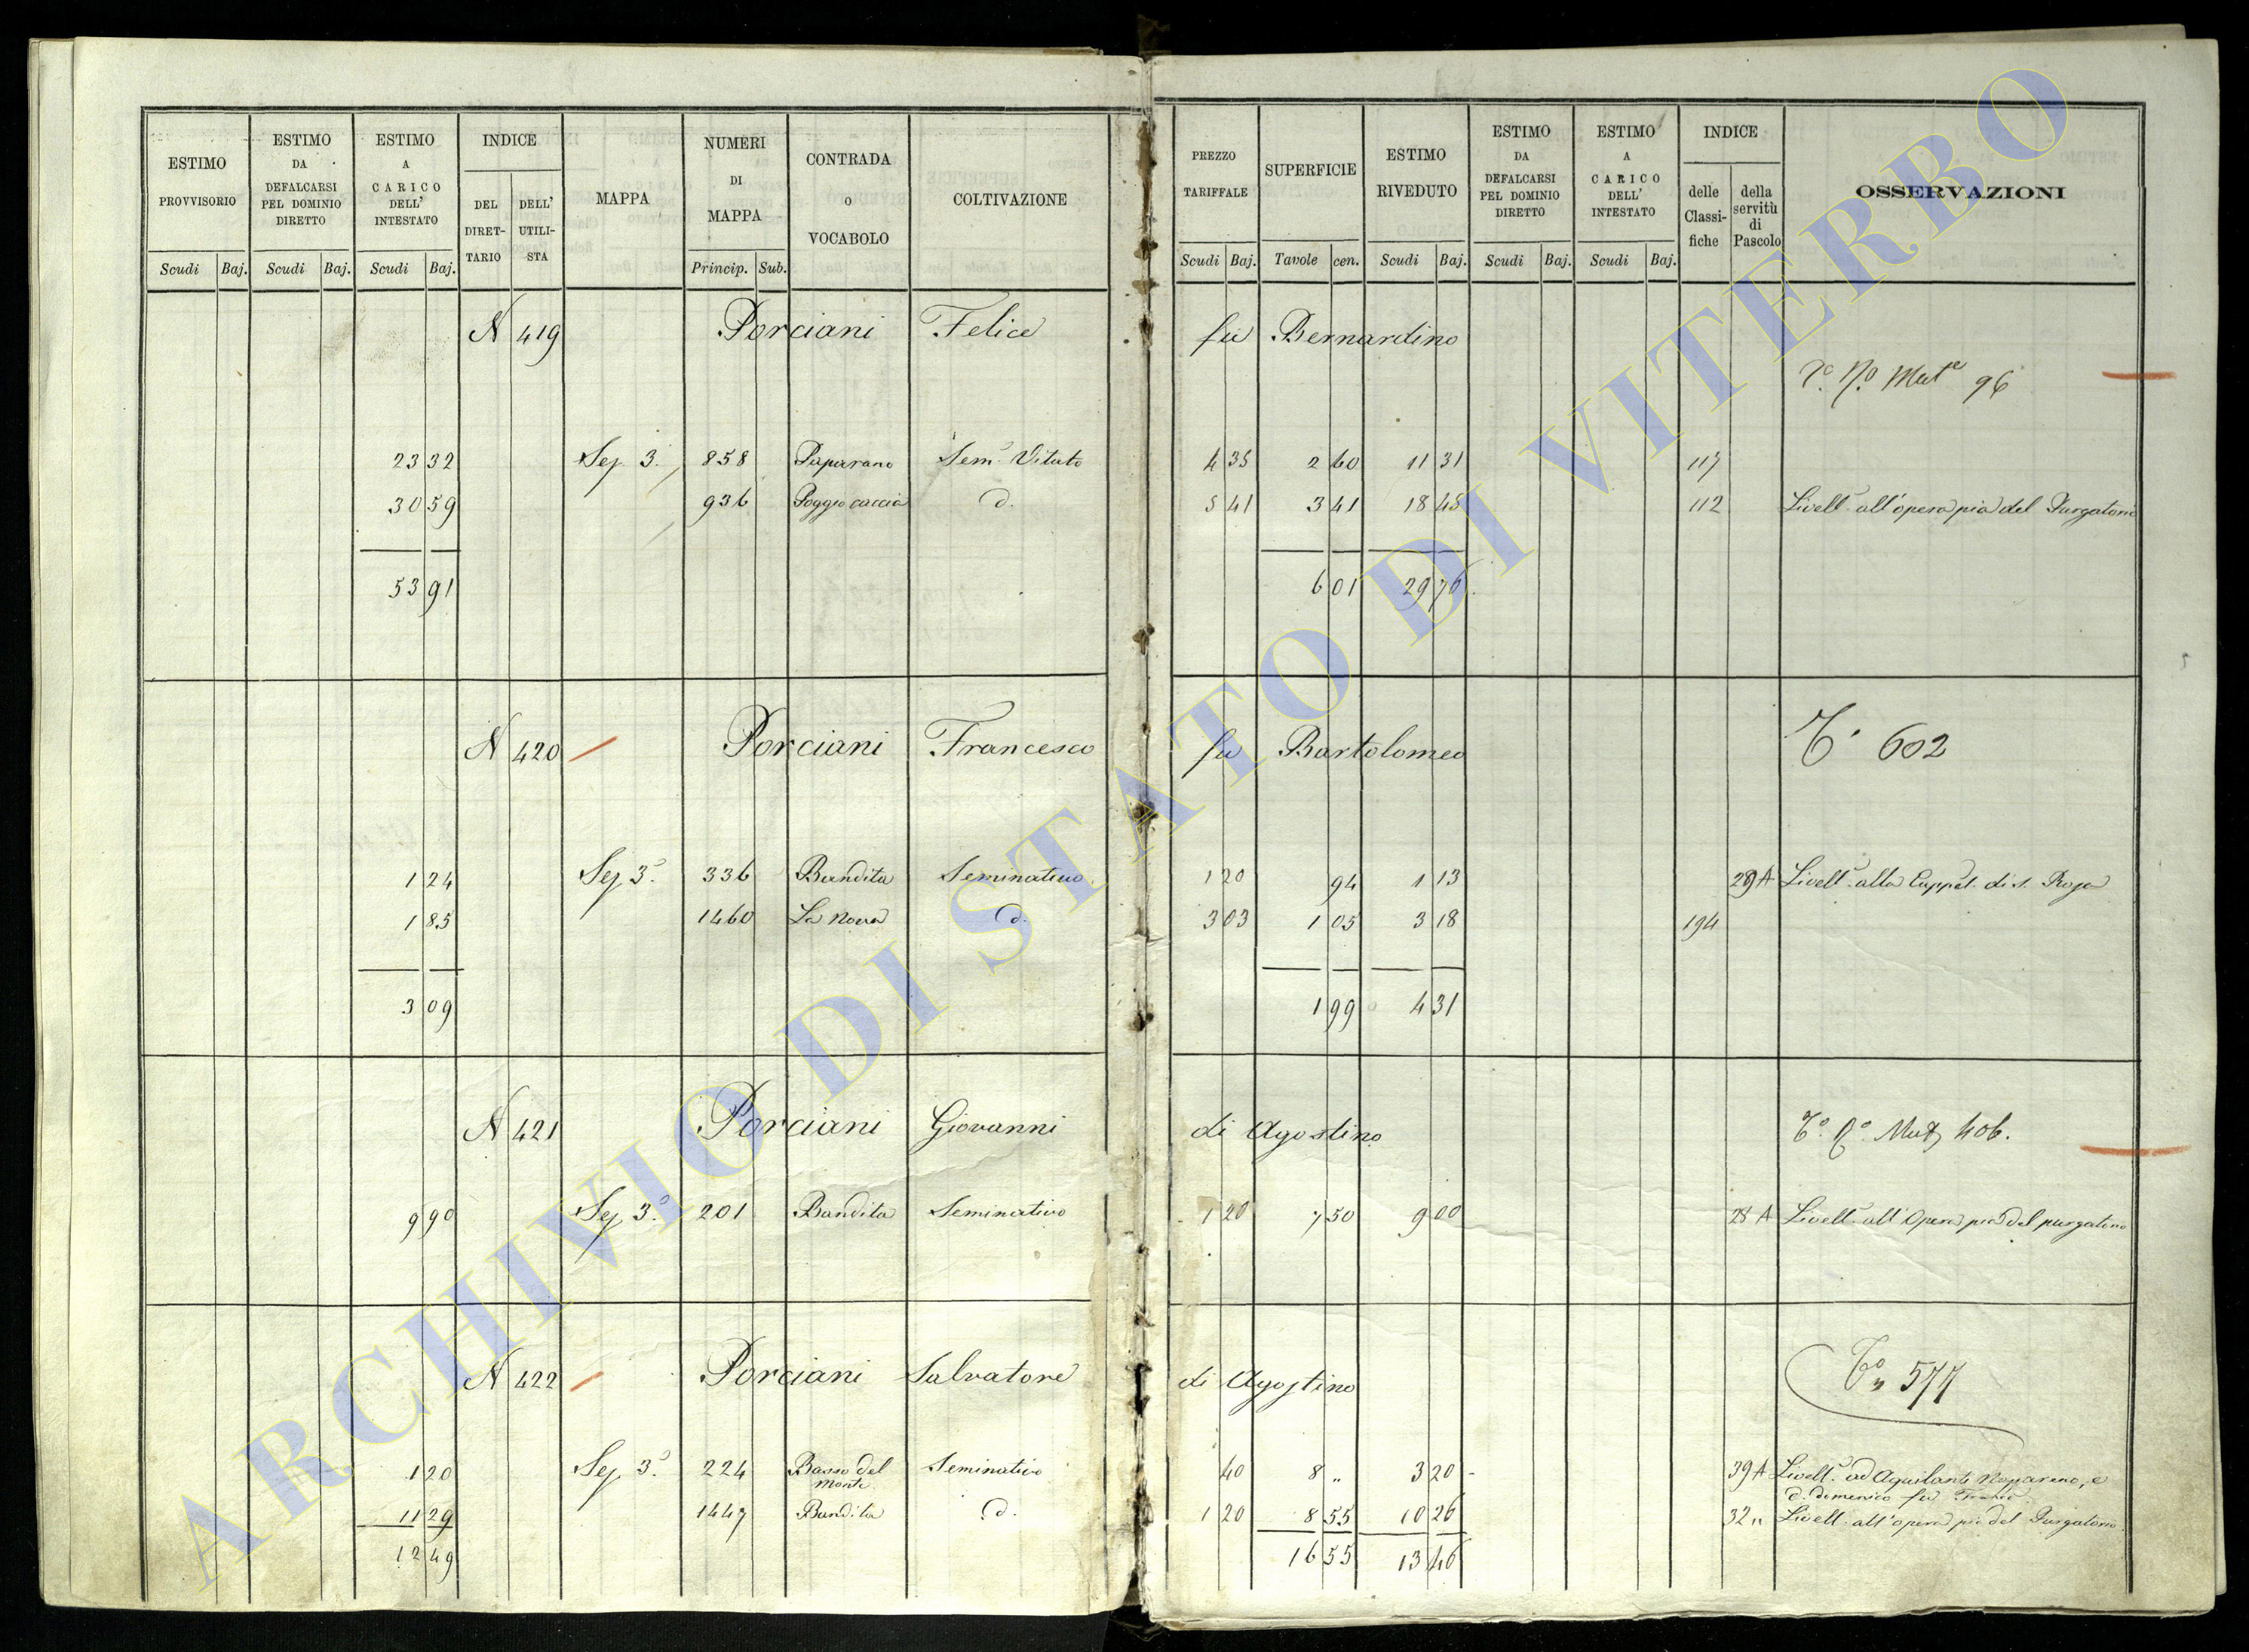 ESTIMO PROVVISORIO
Scudi Baj.
ESTIMO DA DEFALCARSI PEL DOMINIO DIRETTO
Scudi Baj.
ESTIMO A CARICO DELL' INTESTATO
Scudi Baj.
INDICE
DEL DIRET-TARIO
DELL' UTILI-STA
MAPPA
NUMERI DI MAPPA
Princip. Sub.
CONTRADA O VOCABOLO
COLTIVAZIONE
PREZZO TARIFFALE
Scudi Baj.
SUPERFICIE
Tavole cen.
ESTIMO RIVEDUTO
Scudi Baj.
ESTIMO DA DEFALCARSI PEL DOMINIO DIRETTO
Scudi Baj.
ESTIMO A CARICO DELL' INTESTATO
Scudi Baj.
INDICE
delle Classi-fiche
della servitù di Pascolo
OSSERVAZIONI
N 419 Porciani Felice fu Bernardino
96
23 32 Sez 3. 858 Paparano Sem. Vitato 4 35 2 60 11 31 117
30 59 936 Poggio caccia d. 5 41 3 41 18 45 112 Livell. all'opera pia del Purgatorio
53 91 6 01 29 76
N 420 Porciani Francesco fu Bartolomeo
602
1 24 Sez 3. 336 Bandita Seminativo 1 20 94 1 13 29 A Livell. alla Cappel. di s.
1 85 1460 La Nova d. 3 03 1 05 3 18 194
3 09 1 99 4 31
N 421 Porciani Giovanni di Agostino
406.
9 90 Sez 3. 201 Bandita Seminativo 1 20 7 50 9 00 28 A Livell. all'Opera pia del purgatorio
N 422 Porciani Salvatore di Agostino
577
1 20 Sez 3. 224 Basso del Monte Seminativo 40 8 „ 3 20 39 A Livell. ad Aquilanti
d. domenico fu
11 29 1447 Bandita d. 1 20 8 55 10 26 32 „ Livell. all'opera pia del Purgatorio
12 49 16 55 13 46
ARCHIVIO DI STATO DI VITERBO